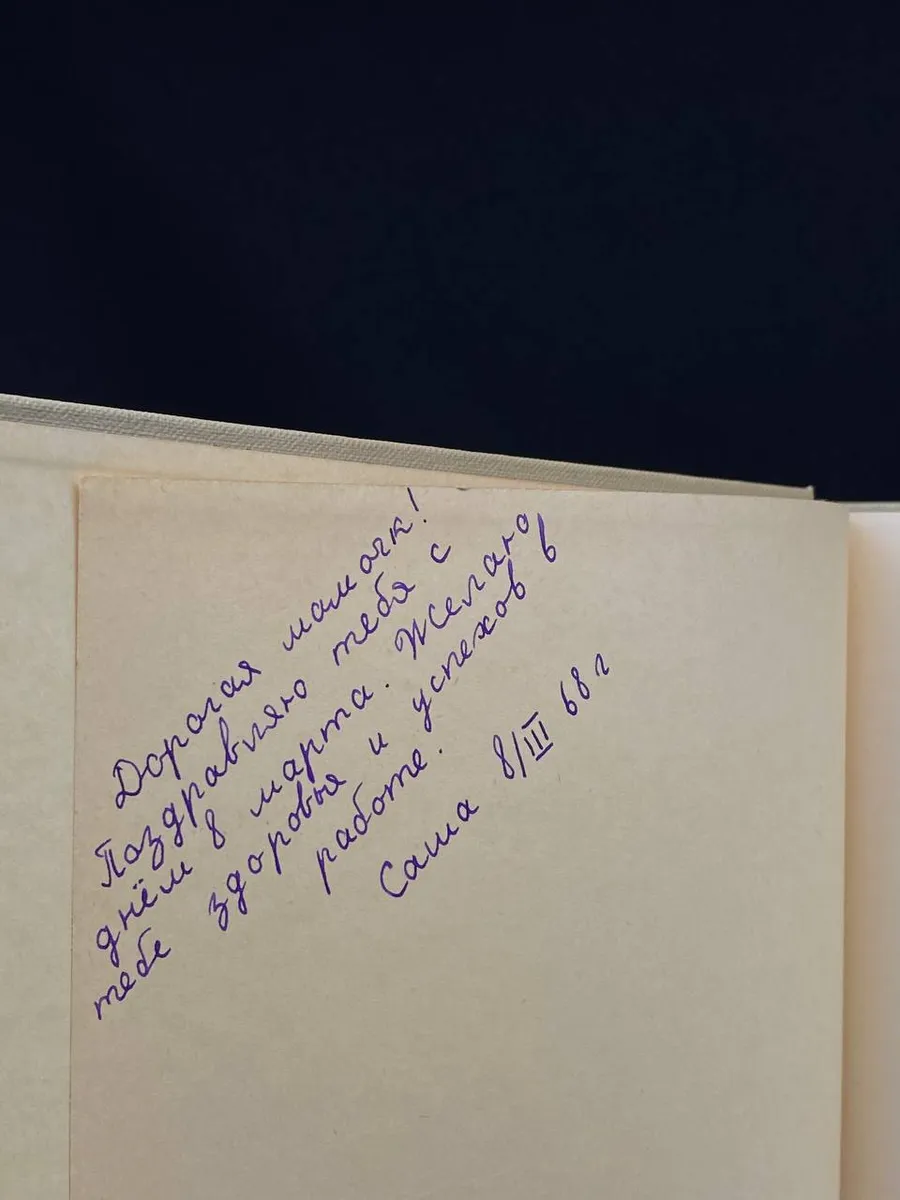 Дорогая мамочк!
Поздравляю тебя с
днём 8 марта. Желаю
тебе здоровья и успехов в
работе.
Саша 8/III 68 г